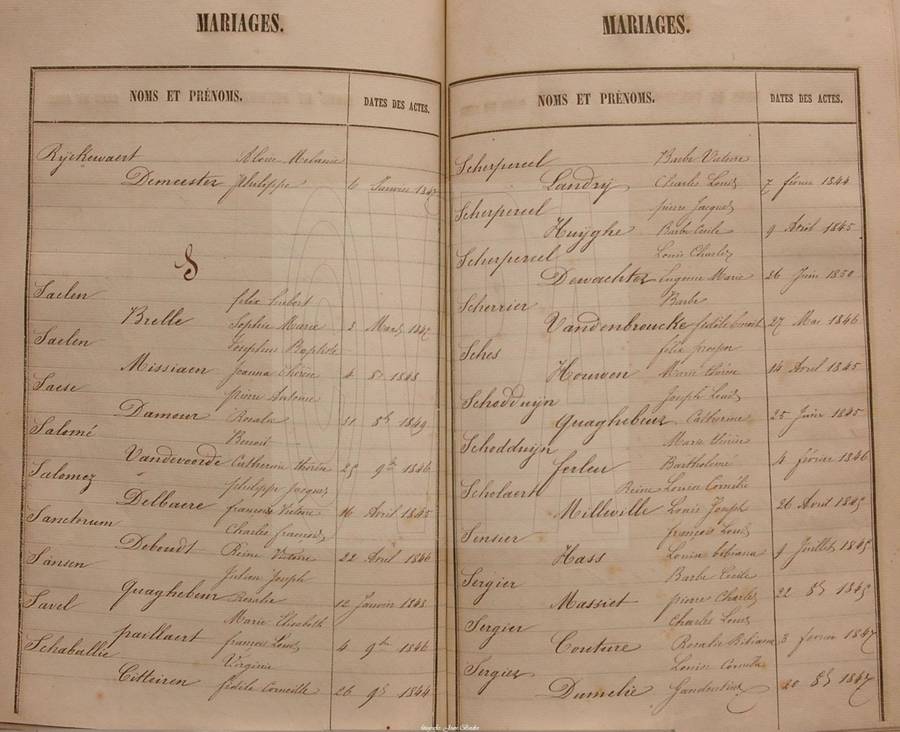 MARIAGES.
NOMS ET PRÉNOMS. DATES DES ACTES.
Rÿckewaert Mélanie
Demeester Philippe 6 Janvier
S
Saelen felix hubert
Brelle Sophie Marie 3 Mars 1847
Saelen Josephus Baptiste
Missiaen Joanna Thérèse 4 8r 1848
Saese pierre Antoine
Damour Rosalie 31 8b 1849
Salomé Benoit
Vandevoorde Catherine thérèse 25 9b 1846
Salomez philippe jacques
Delbaere francoise Victoire 16 Avril 1845
Sanctorum Charles francois
Deboudt Reine Victoire 22 Avril 1846
Sansen Julien Joseph
Quaghebeur Rosalie 12 Janvier 1848
Savel Marie Elisabeth
paillaert francois Louis 4 9b 1846
Schaballie Virginie
Citteiren fidele Corneille 26 9b 1844
MARIAGES.
NOMS ET PRÉNOMS. DATES DES ACTES.
Scherpereel Barbe Victoire
Landrÿ Charles Louis 7 février 1844
Scherpereel pierre Jacques
Huÿghe Barbe Cecile 9 Avril 1845
Scherpereel Louis Charles
Dewachter Eugenie Marie 26 Juin 1850
Scherrier Barbe
Vandenbroucke fidèle benoit 27 Mai 1846
Sches felix prosper
Houwen Marie thérèse 14 Avril 1845
Schodduijn Joseph Louis
Quaghebeur Catherine 25 Juin 1845
Schodduijn Marie
ferleu Bartholomé 4 février 1846
Scholaert Reine Louise Cornélie
Milleville Louis Joseph 26 Avril 1845
Sensier françois Louis
Hass Louise bibiana 9 Juillet 1845
Sergier Barbe Cecile
Massiet pierre Charles 22 8b 1845
Sergier Charles Louis
Couture Rosalie Bibiane 3 fevrier 1847
Sergier Louise Cornelie
Dumelie 20 8b 1847